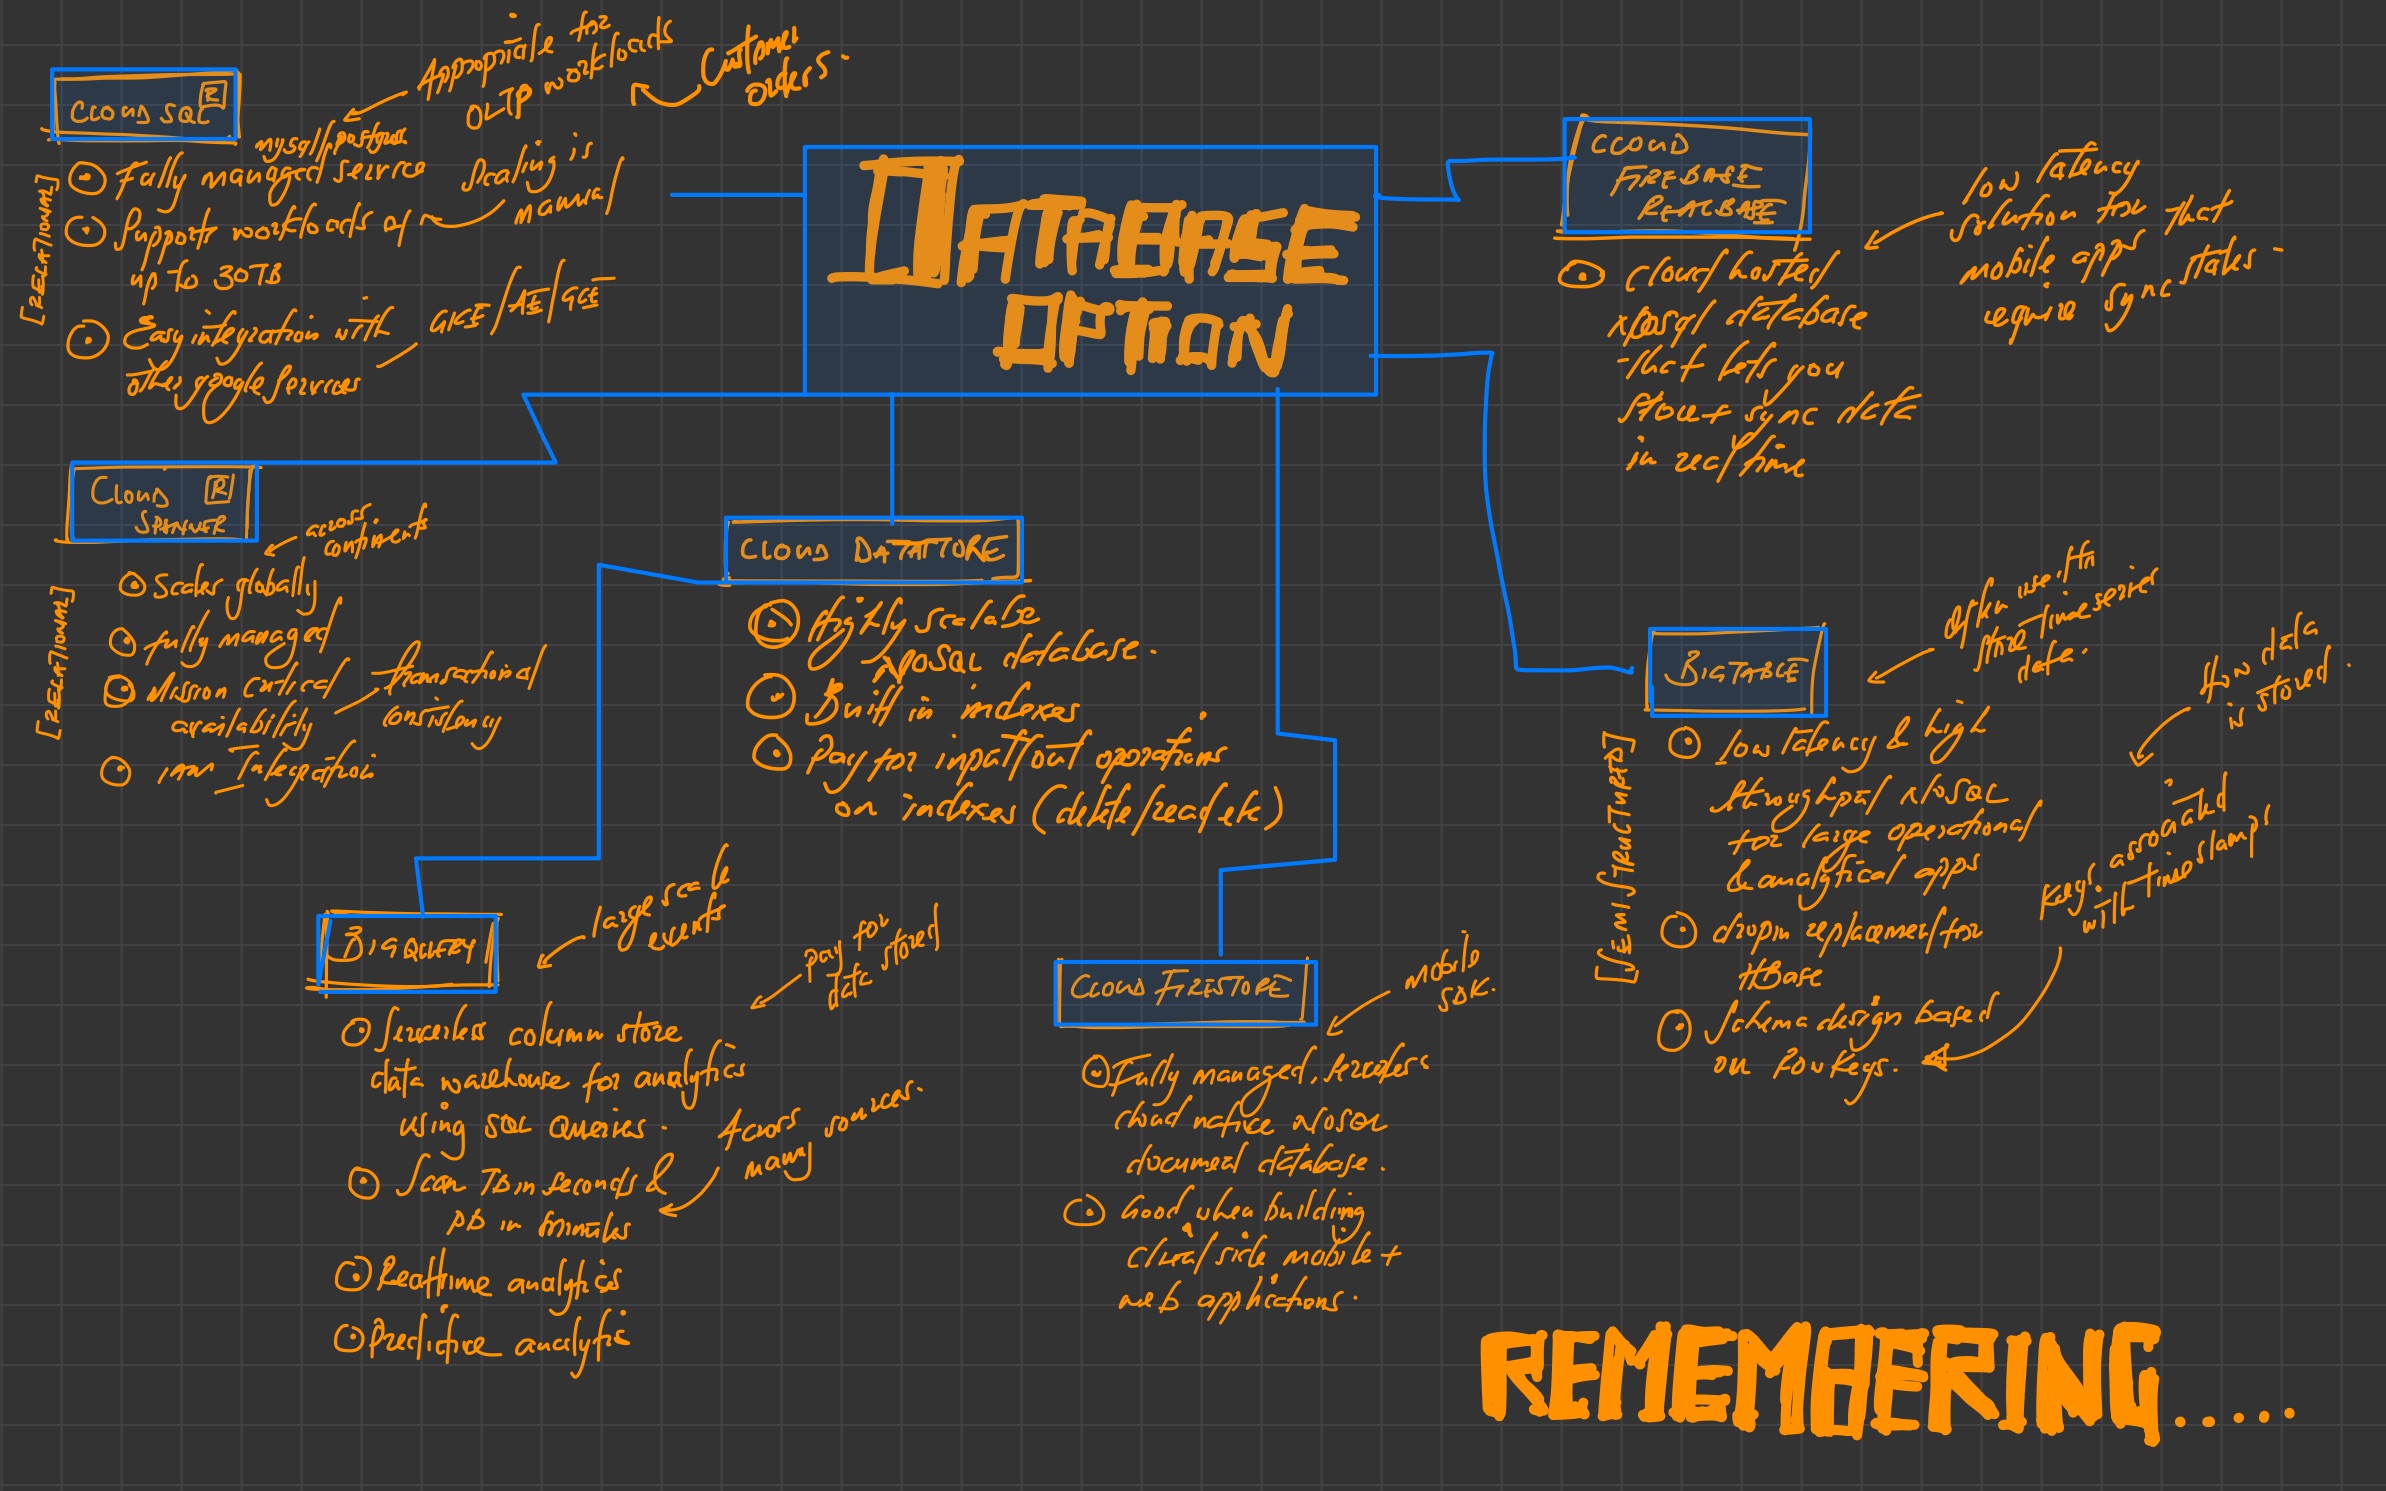 DATABASE
OPTION
CLOUD SQL R
[RELATIONAL]
Appropriate for
OLTP workloads
Customer
orders.
mysql/postgres
Fully managed service
Supports workloads of
up to 30TB
Scaling is
manual
Easy integration with
other google services
GKE/AE/GCE
CLOUD R
SPANNER
[RELATIONAL]
across
continents
Scales globally
fully managed
Mission critical
availability
transactional
consistency
IAM Integration
CLOUD DATATTORE
Highly scalabe
NoSQL database.
Built in indexes
Pay for input/out operations
on indexes (delete/read etc)
BIGQUERY
large scale
events
pay for
data stored
Serverless column store
data warehouse for analytics
using SQL Queries.
Scan TB in seconds &
PB in minutes
Across
many sources.
Realtime analytics
Predictive analytic
CLOUD FIRESTORE
mobile
SDK.
Fully managed, serverless
cloud native NoSQL
document database.
Good when building
client side mobile +
web applications.
CLOUD
FIREBASE
REALBASE
low latency
solution for that
mobile apps that
require sync states -
cloud hosted
NoSQL database
that lets you
store + sync data
in real time
BIGTABLE
[SEMI STRUCTURED]
often use
store time series
data.
How data
is stored.
low latency & high
throughput NoSQL
for large operational
& analytical apps
dropin replacement for
HBase
Schema design based
on Row Keys.
Keys associated
with timestamps
REMEMBERING.....